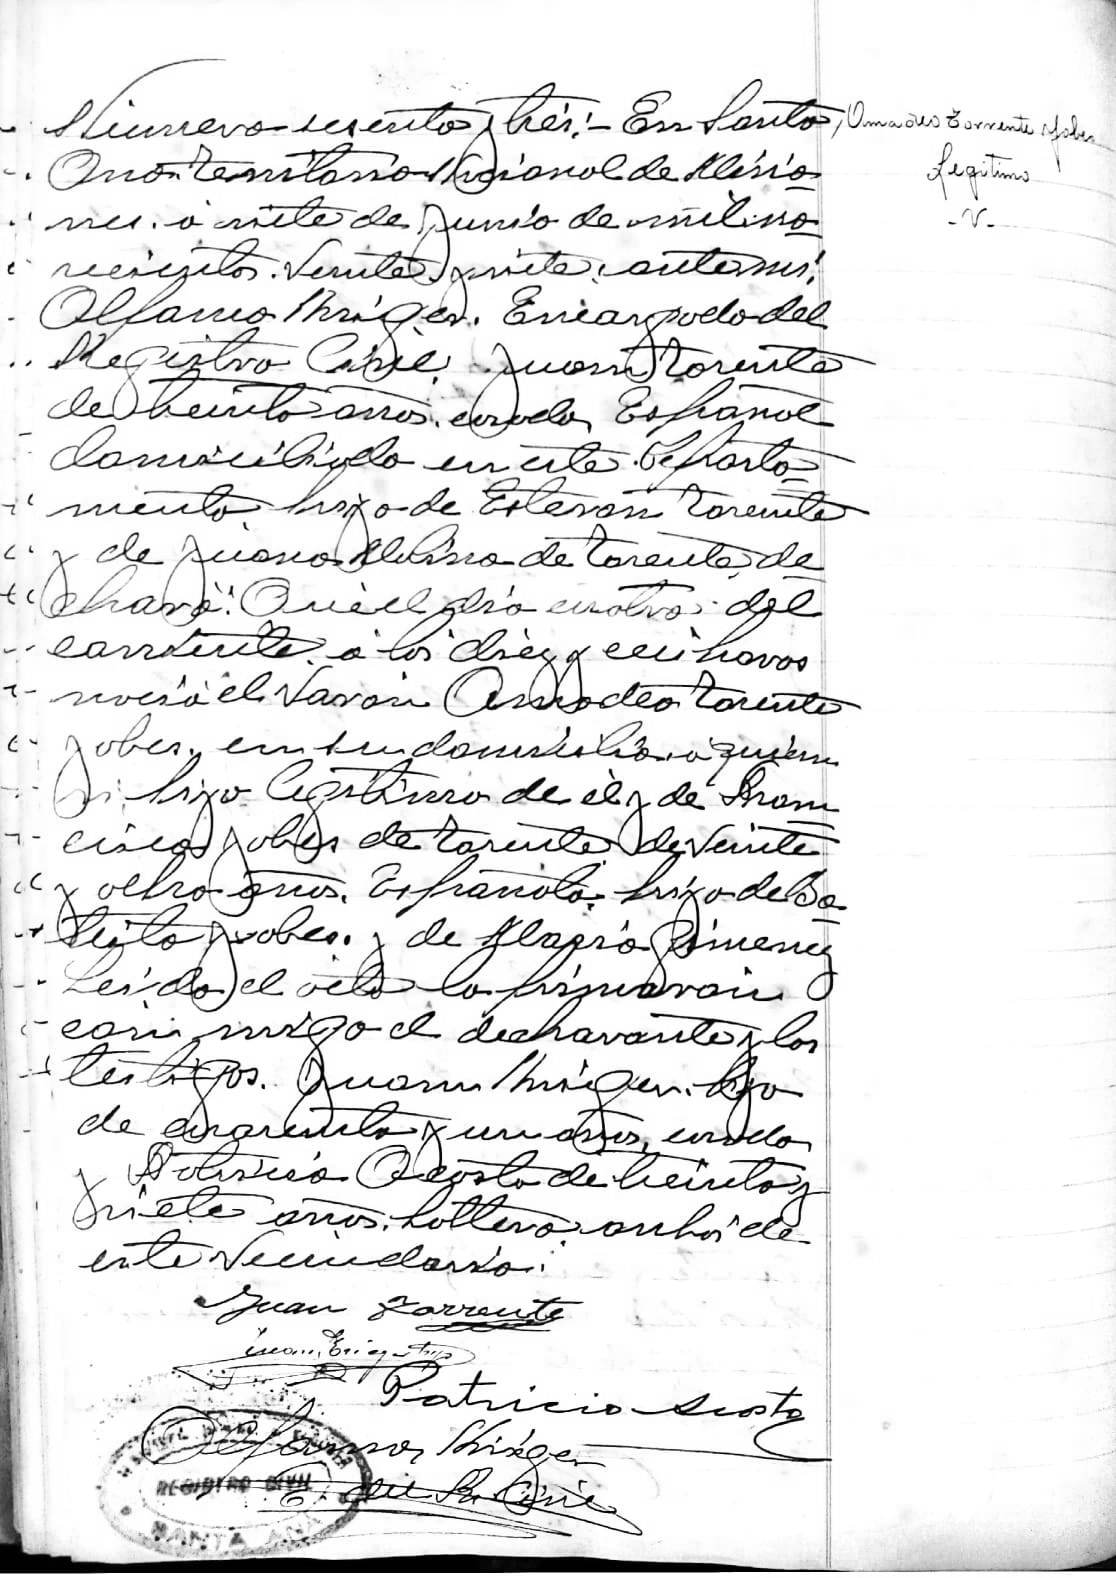 Numero sesenta y tres.- En Santa
Ana territorio Nacional de Misio
nes. a siete de junio de mil no
vecientos veinte y siete, ante mi,
Alfanso Kriger. Encargado del
Registro Civil, Juan Torente
de treinta años, casado, Español
domiciliado en este Departa
mento, hijo de Estevan Torente
y de Juana de Torente, de
claró: Que el dia cuatro del
corriente, a los diez y ceis horas
nació el Varon Amadeo Torente
Jobes, en su domicilio, a quien
hijo legitimo de él y de Fran
cisca Jobes de Torente, de veinte
y ocho años, Española, hija de Ba
Jobes, y de Maria Gimenez
Leida el acta la firmaron
con migo el declarante y los
testigos. Juan Kriger. hijo
de cuarenta y un años, casado,
y Patricio Acosta de treinta y
siete años, soltero, anbos de
este Vecindario.
Juan Torrente
Juan Kriger hijo
Patricio Acosta
Alfanso Kriger
E. del R. Civil
Amadeo Torrente Jobes
Legitimo
-V-
REGISTRO CIVIL
SANTA ANA